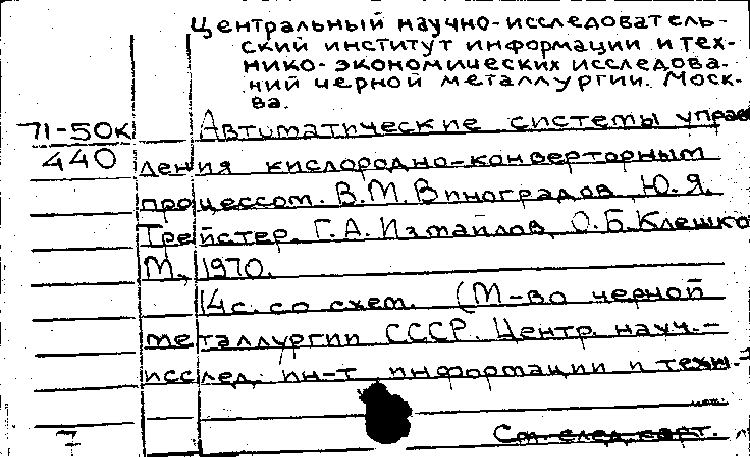 Центральный научно-исследователь-
ский институт информации и тех-
нико-экономических исследова-
ний черной металлургии. Моск-
ва.
71-50к Автоматические системы управ
440 ления кислородно-конверторным
процессом. В.М. Виноградов, Ю.Я.
Трейстер, Г.А. Измайлов, О.Б. Клешко
М., 1970.
14 с. со схем. (М-во черной
металлургии СССР. Центр. науч.-
исслед. ин-т информации и техн.-
7 См. след. карт.